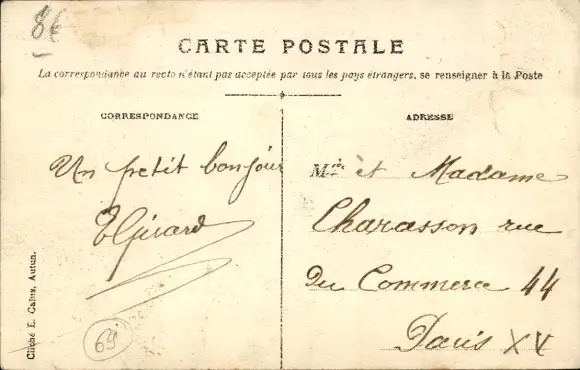 86
CARTE POSTALE
La correspondance au recto n'étant pas acceptée par tous les pays étrangers, se renseigner à la Poste
CORRESPONDANCE
ADRESSE
Un petit bonjour
EGirard
M et Madame
Charasson rue
Du Commerce 44
Paris XV
69
Cliché E. Calus, Autun.